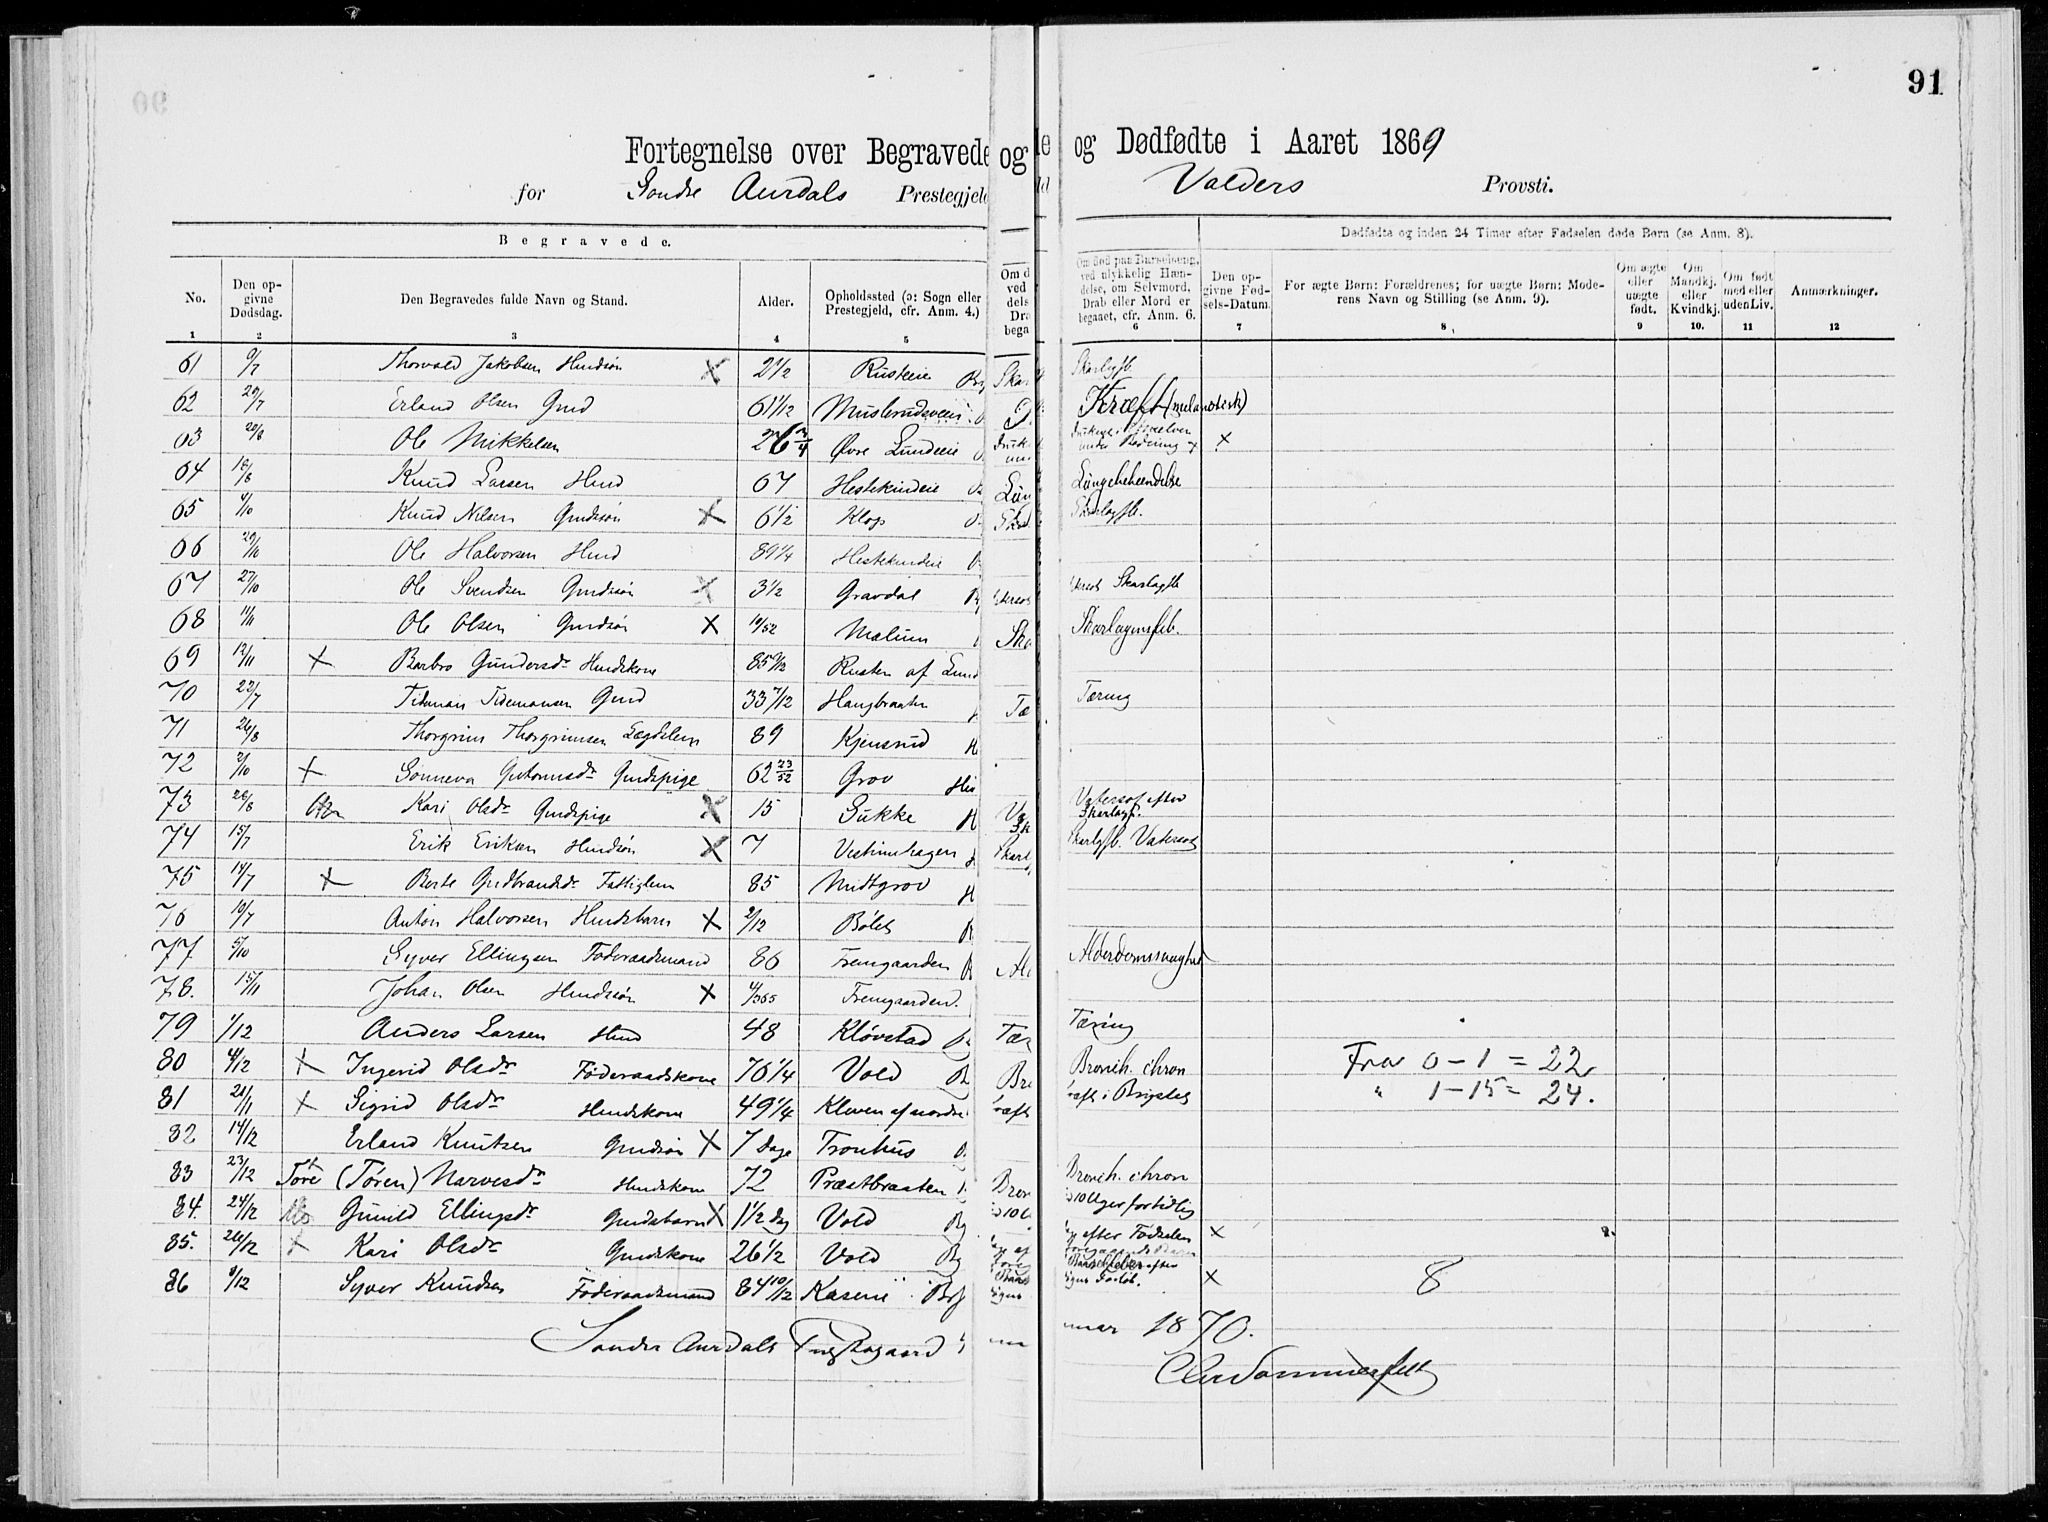 91
Fortegnelse over Begravede og Dødfødte i Aaret 1869
for Søndre Aurdals Prestegjeld Valders Provsti.
Begravede.
Dødfødte og inden 24 Timer efter Fødselen døde Børn (se Anm. 8).
No. Den opgivne Dødsdag. Den Begravedes fulde Navn og Stand. Alder. Opholdssted (ɔ: Sogn eller Prestegjeld, cfr. Anm. 4.) Om død paa Barselseng, ved ulykkelig Hændelse, om Selvmord, Drab eller Mord er begaaet, cfr. Anm. 6. Den opgivne Fødsels-Datum. For ægte Børn: Forældrenes; for uægte Børn: Moderens Navn og Stilling (se Anm. 9). Om ægte eller uægte født. Om Mandkj. eller Kvindkj. Om født med eller uden Liv. Anmærkninger.
1 2 3 4 5 6 7 8 9 10. 11 12
61 9/7 Thorvald Jakobsen Husdsøn X 2 1/2 Rusteie Skarlagfb
62 29/7 Erland Olsen Gmd 61 1/12 Kræft (melanotisk)
63 20/8 Ole Mikkelsen 26 3/4 Øvre Lundeie under Redning X
64 18/8 Knud Larsen Husd 67 Hestekindeie Lungebetændelse
65 4/10 Knud Nilsen Gmdssøn X 6 1/2 Klop Skarlagfb.
66 29/10 Ole Halvorsen Husd 89 1/4 Hestekindeie
67 27/10 Ole Svendsen Gmdssøn X 3 1/2 Gravdal Skarlagfb
68 11/11 Ole Olsen Gmdssøn X 10/52 Mælum Skarlagensfeb.
69 12/11 X Barbro Gundersdr Husdskone 85 Rusten af Lund
70 22/7 Tideman Tidemansen Gmd 33 7/12 Haugbraaten Tæring
71 26/8 Thorgrim Thorgrimsen Lægdslem 89 Kjensrud
72 2/10 X Sønneva Guttormsdr Gmdspige 62 23/52 Grov
73 26/8 Kari Olsdr Gmdspige X 15 Sukke Vatersot efter Skarlagf.
74 15/7 Erik Eriksen Husdsøn X 7 Vestrumhagen Skarlgfb. Vatersot
75 14/7 X Berte Gudbrandsdr Fattiglem 85 Midtgrov
76 10/7 Anton Halvorsen Husdsbarn X 2/12 Bølet
77 5/10 Syver Ellingsen Føderaadsmand 86 Fremgaarden Alderdomssvaghed
78. 15/11 Johan Olsen Husdssøn X 4/365 Fremgaarden.
79 1/12 Anders Larsen Husd 48 Kløvstad Tæring
80 4/12 X Ingerid Olsdr Føderaadskone 76 1/4 Vold Bronch. chron Fra 0–1 = 22
81 21/11 X Sigrid Olsdr Husdskone 49 1/4 Kleven af nordre Kræft i Brystet " 1–15 = 24.
82 14/12 Erland Knutsen Gmdssøn X 7 Dage Tronhus
83 23/12 Tore (Tøren) Narvesdr Husdskone 72 Præstbraaten Bronch. chron
84. 24/12 Gunild Ellingsdr Gmdsbarn X 1 1/2 dag Vold 10 Uger fortidlig
85. 26/12 X Kari Olsdr Gmdskone 26 1/2 Vold efter Fødselen X
86 8/12 Syver Knudsen Føderaadsmand 84 10/12 Kaseneie X 8
Søndre Aurdals Prestegaard 1870.
Chr Sommerfelt